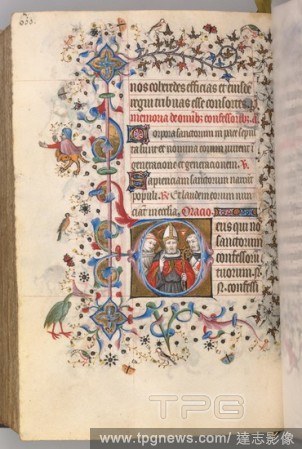 nos coherdes efficias et eiusde
regni tribuas esse consortes. P
memoria de omnib; confessorib; a.
Corpora sanctorum in pace sepul
ta sunt et nomina eorum vivent i
generacione et generacionem. V
Sapienciam sanctorum narrent
populi. R Et laudem eorum nun
ciat ecclesia. Oracio.
Deus qui no
sanctorum
confessorum
tuorum. N.
N. confessi
TPG
www.tpgnews.com/達志影像